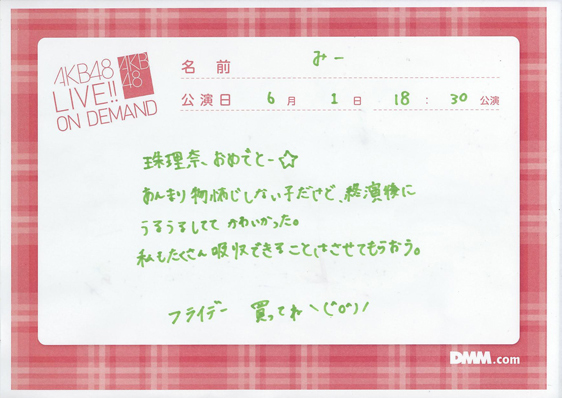 AKB48
LIVE!!
ON DEMAND
AKB
48
名前 みー
公演日 6月1日 18:30公演
珠理奈、おめでとー☆
あんまり物怖じしない子だけど、終演後に
うるうるしてて かわいかった。
私もたくさん吸収できることはさせてもらおう。
フライデー 買ってねヽ(°o°)ノ
DMM.com